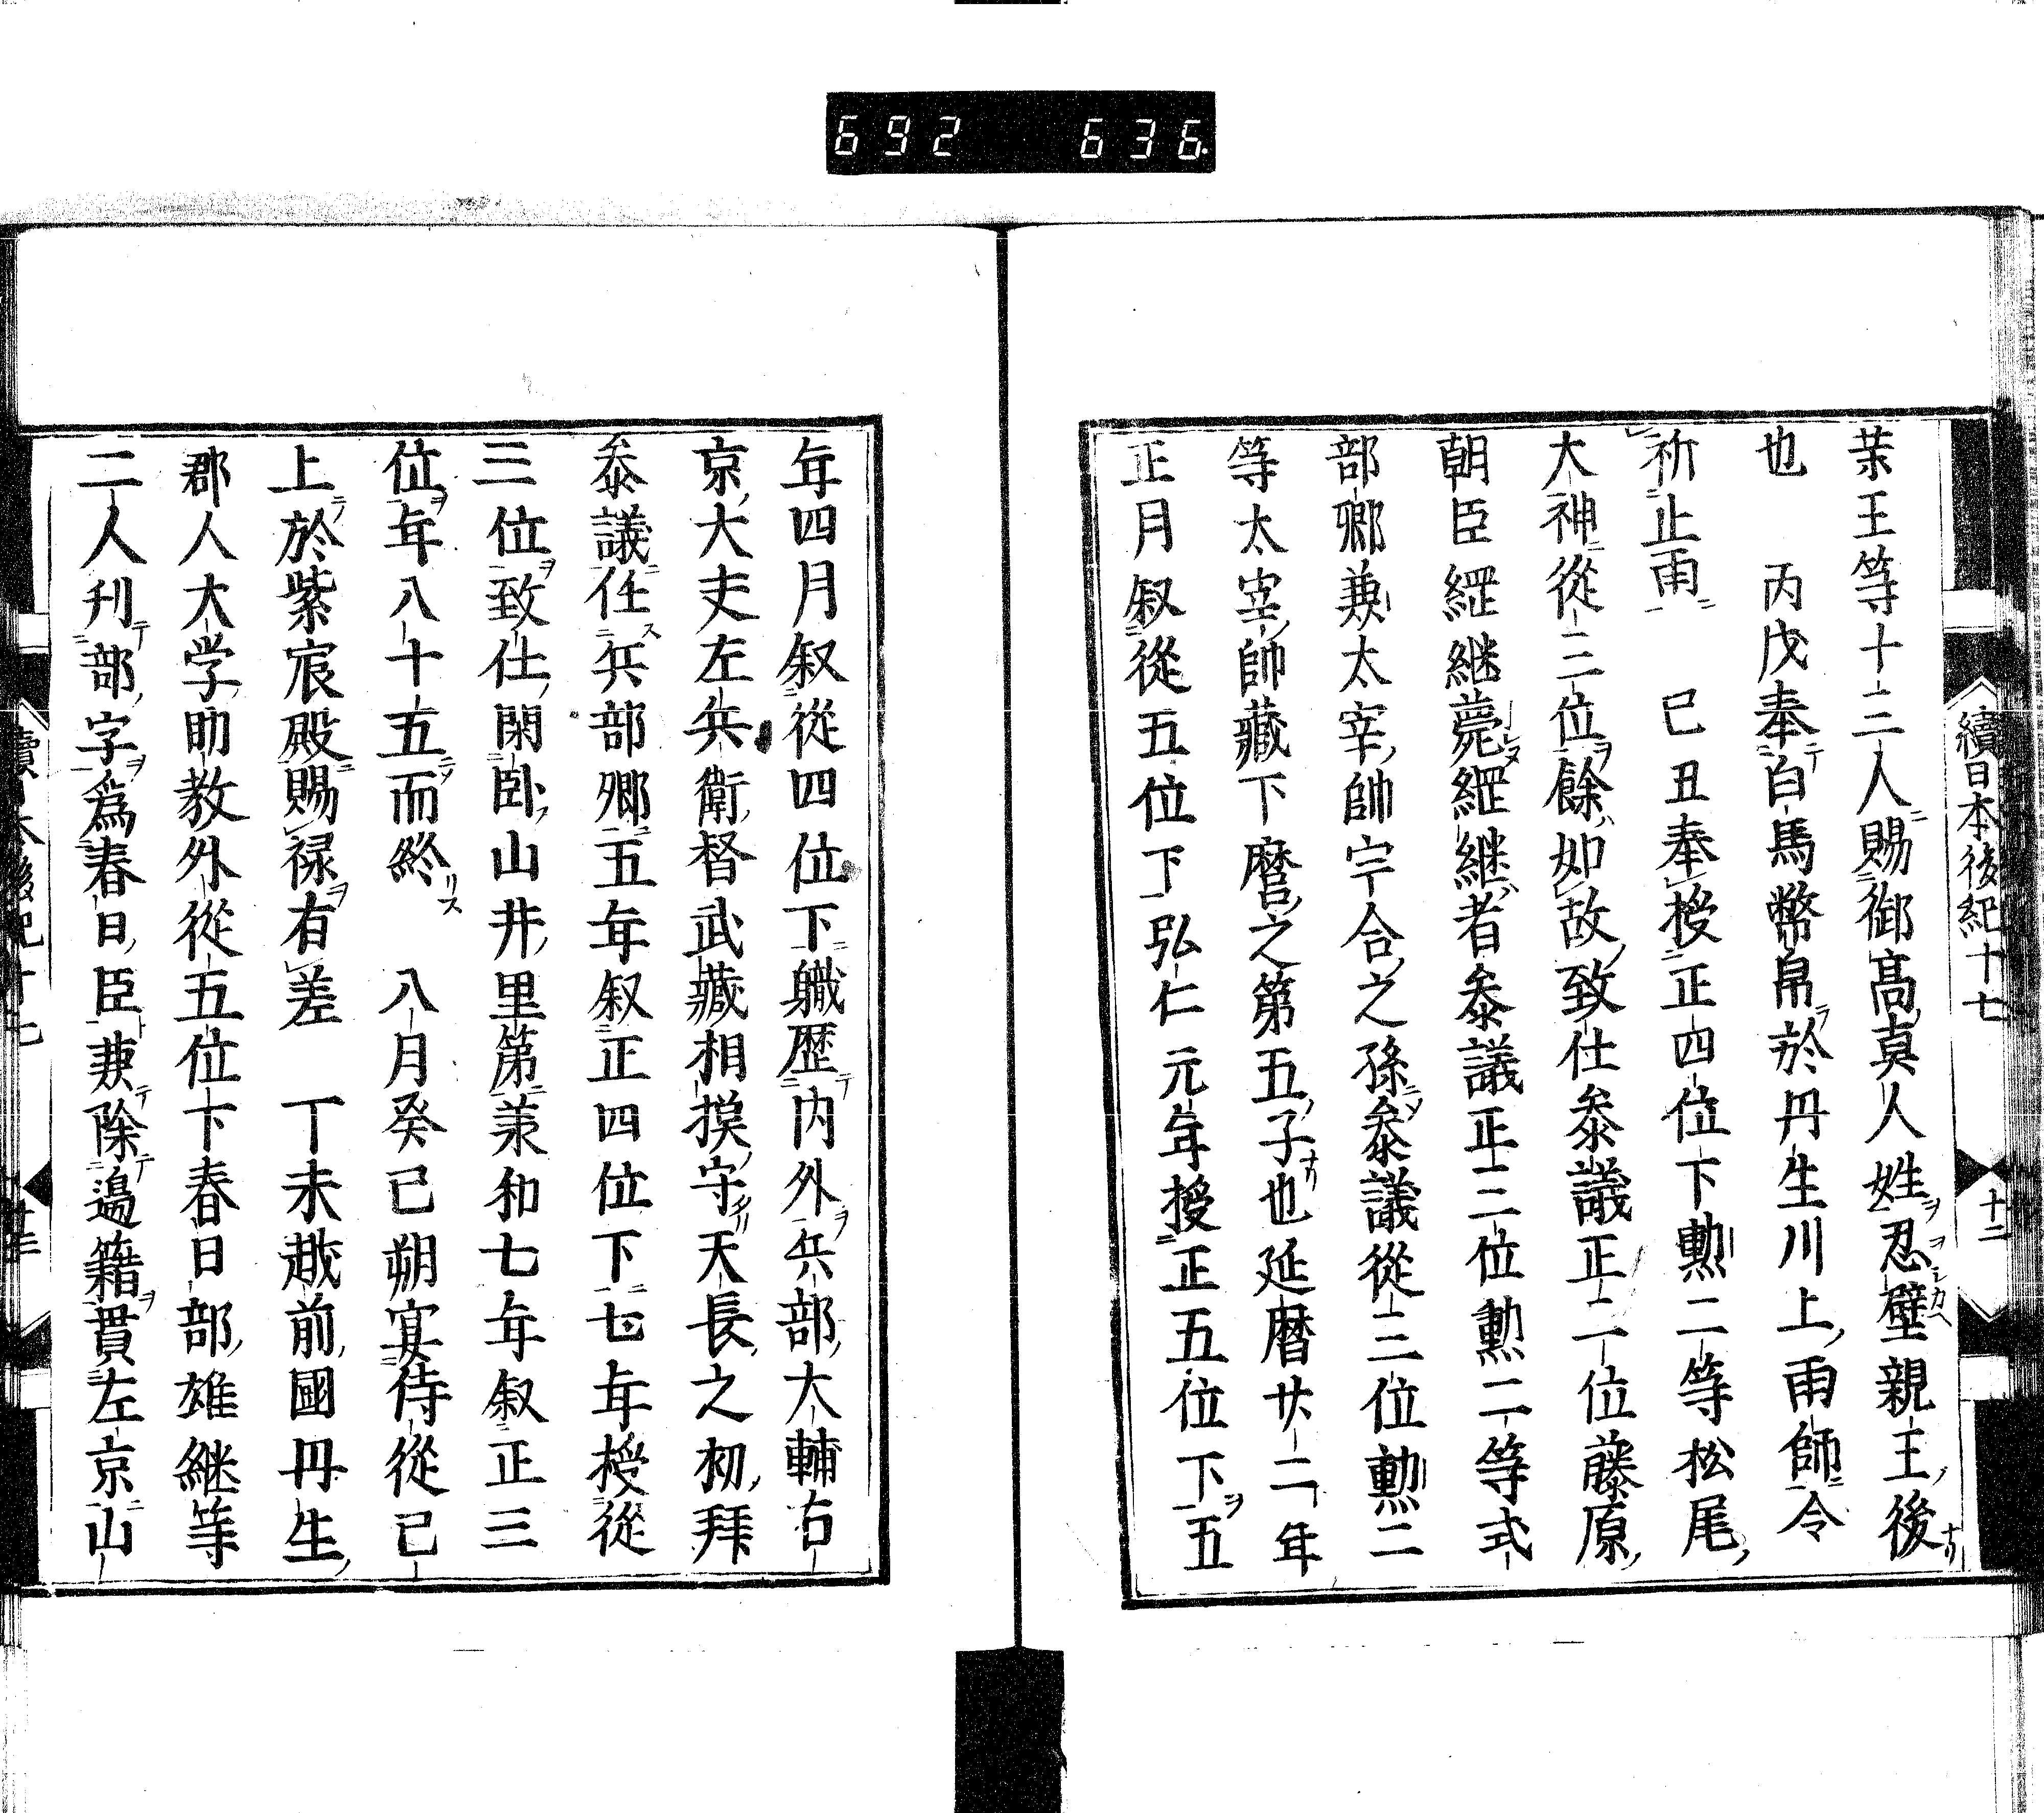 692 636
續日本後紀十七 十二
業王等十二人賜御高真人姓忍壁親王後
也 丙戌奉白馬幣帛於丹生川上雨師令
祈止雨 已丑奉授正四位下勲二等松尾
大神從三位餘如故致仕叅議正二位藤原
朝臣綛継薨綛継者叅議正三位勲二等式
部卿兼太宰帥宇合之孫叅議從三位勲二
等太宰帥藏下麿之第五子也延暦廿二年
正月叙從五位下弘仁元年授正五位下五
年四月叙從四位下軄歴内外兵部大輔右
京大夫左兵衛督武藏相摸守天長之初拜
叅議任兵部卿五年叙正四位下七年授從
三位致仕閑臥山井里第兼和七年叙正三
位年八十五而終 八月癸已朔宴侍從已
上於紫宸殿賜禄有差 丁未越前國丹生
郡人大学助教外從五位下春日部雄継等
二人刊部字爲春日臣兼除邉籍貫左京山